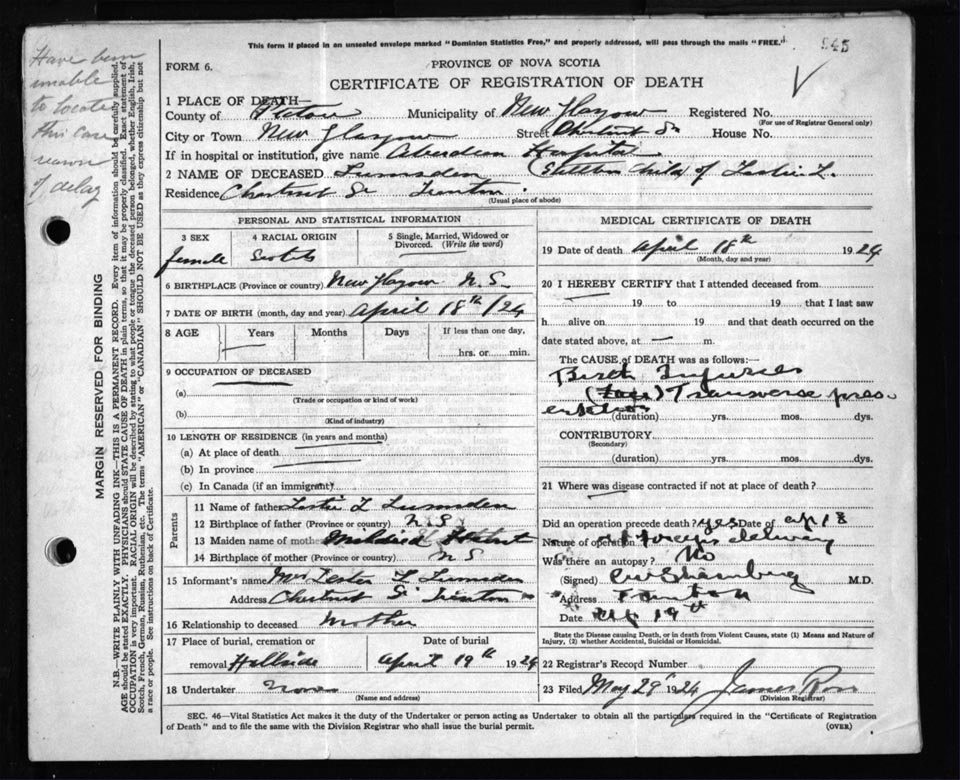 This form if placed in an unsealed envelope marked "Dominion Statistics Free," and properly addressed, will pass through the mails "FREE."
545
FORM 6.
PROVINCE OF NOVA SCOTIA
CERTIFICATE OF REGISTRATION OF DEATH
Have been
unable
to locate
this case
reason
of delay
MARGIN RESERVED FOR BINDING
N.B.—WRITE PLAINLY WITH UNFADING INK—THIS IS A PERMANENT RECORD. Every item of information should be carefully supplied.
AGE should be stated EXACTLY. PHYSICIANS should STATE CAUSE OF DEATH in plain terms, so that it may be properly classified. Exact statement of
OCCUPATION is very important. RACIAL ORIGIN will be described by stating to what people or tongue the deceased person belonged, whether English, Irish,
Scotch, French, German, Russian, Ruthenian, etc. The terms "AMERICAN" or "CANADIAN" SHOULD NOT BE USED as they express citizenship but not
a race or people. See instructions on back of Certificate.
1 PLACE OF DEATH—
County of Pictou Municipality of New Glasgow Registered No.
(For use of Registrar General only)
City or Town New Glasgow Street Chestnut St House No.
If in hospital or institution, give name Aberdeen Hospital
2 NAME OF DECEASED Lumsden (Stillborn child of Leslie L.
Residence Chestnut St Trenton
(Usual place of abode)
PERSONAL AND STATISTICAL INFORMATION
3 SEX 4 RACIAL ORIGIN 5 Single, Married, Widowed or Divorced. (Write the word)
female Scotch
6 BIRTHPLACE (Province or country) New Glasgow N.S.
7 DATE OF BIRTH (month, day and year) April 18th /24
8 AGE Years Months Days If less than one day,
hrs. or min.
9 OCCUPATION OF DECEASED
(a)
(Trade or occupation or kind of work)
(b)
(Kind of industry)
10 LENGTH OF RESIDENCE (in years and months)
(a) At place of death
(b) In province
(c) In Canada (if an immigrant)
Parents
11 Name of father Leslie L Lumsden
12 Birthplace of father (Province or country) N S
13 Maiden name of mother Mildred
14 Birthplace of mother (Province or country) N S
15 Informant's name Mrs Lester L Lumsden
Address Chestnut St Trenton
16 Relationship to deceased Mother
17 Place of burial, cremation or removal Hillside
Date of burial April 19th 1924
18 Undertaker None
(Name and address)
MEDICAL CERTIFICATE OF DEATH
19 Date of death April 18th 1924
(Month, day and year)
20 I HEREBY CERTIFY that I attended deceased from
19 to 19 that I last saw
h alive on 19 and that death occurred on the
date stated above, at — m.
The CAUSE of DEATH was as follows:—
Birth Injuries
Transverse pres-
entation
(duration) yrs. mos. dys.
CONTRIBUTORY.
(Secondary)
(duration) yrs. mos. dys.
21 Where was disease contracted if not at place of death?
Did an operation precede death? yes Date of Ap 18
Nature of operation forceps delivery
Was there an autopsy? No
(Signed) M.D.
Address Trenton
Date Ap 19th
State the Disease causing Death, or in death from Violent Causes, state (1) Means and Nature of
Injury, (2) whether Accidental, Suicidal or Homicidal.
22 Registrar's Record Number
23 Filed May 29th 1924 James Ross
(Division Registrar)
SEC. 46—Vital Statistics Act makes it the duty of the Undertaker or person acting as Undertaker to obtain all the particulars required in the "Certificate of Registration
of Death" and to file the same with the Division Registrar who shall issue the burial permit.
(OVER)